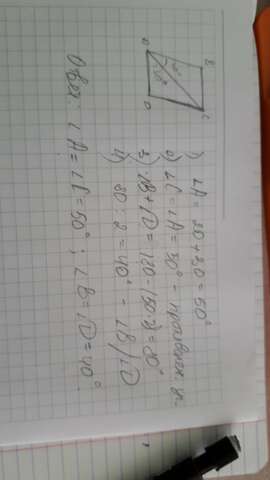 B
C
D
1) ∠A = 20 + 30 = 50°
2) ∠C = ∠A = 50° -
3) ∠B + ∠D = 180 - (50·2) = 80°
4) 80 : 2 = 40° - ∠B, ∠D
Ответ: ∠A = ∠C = 50°; ∠B = ∠D = 40°.